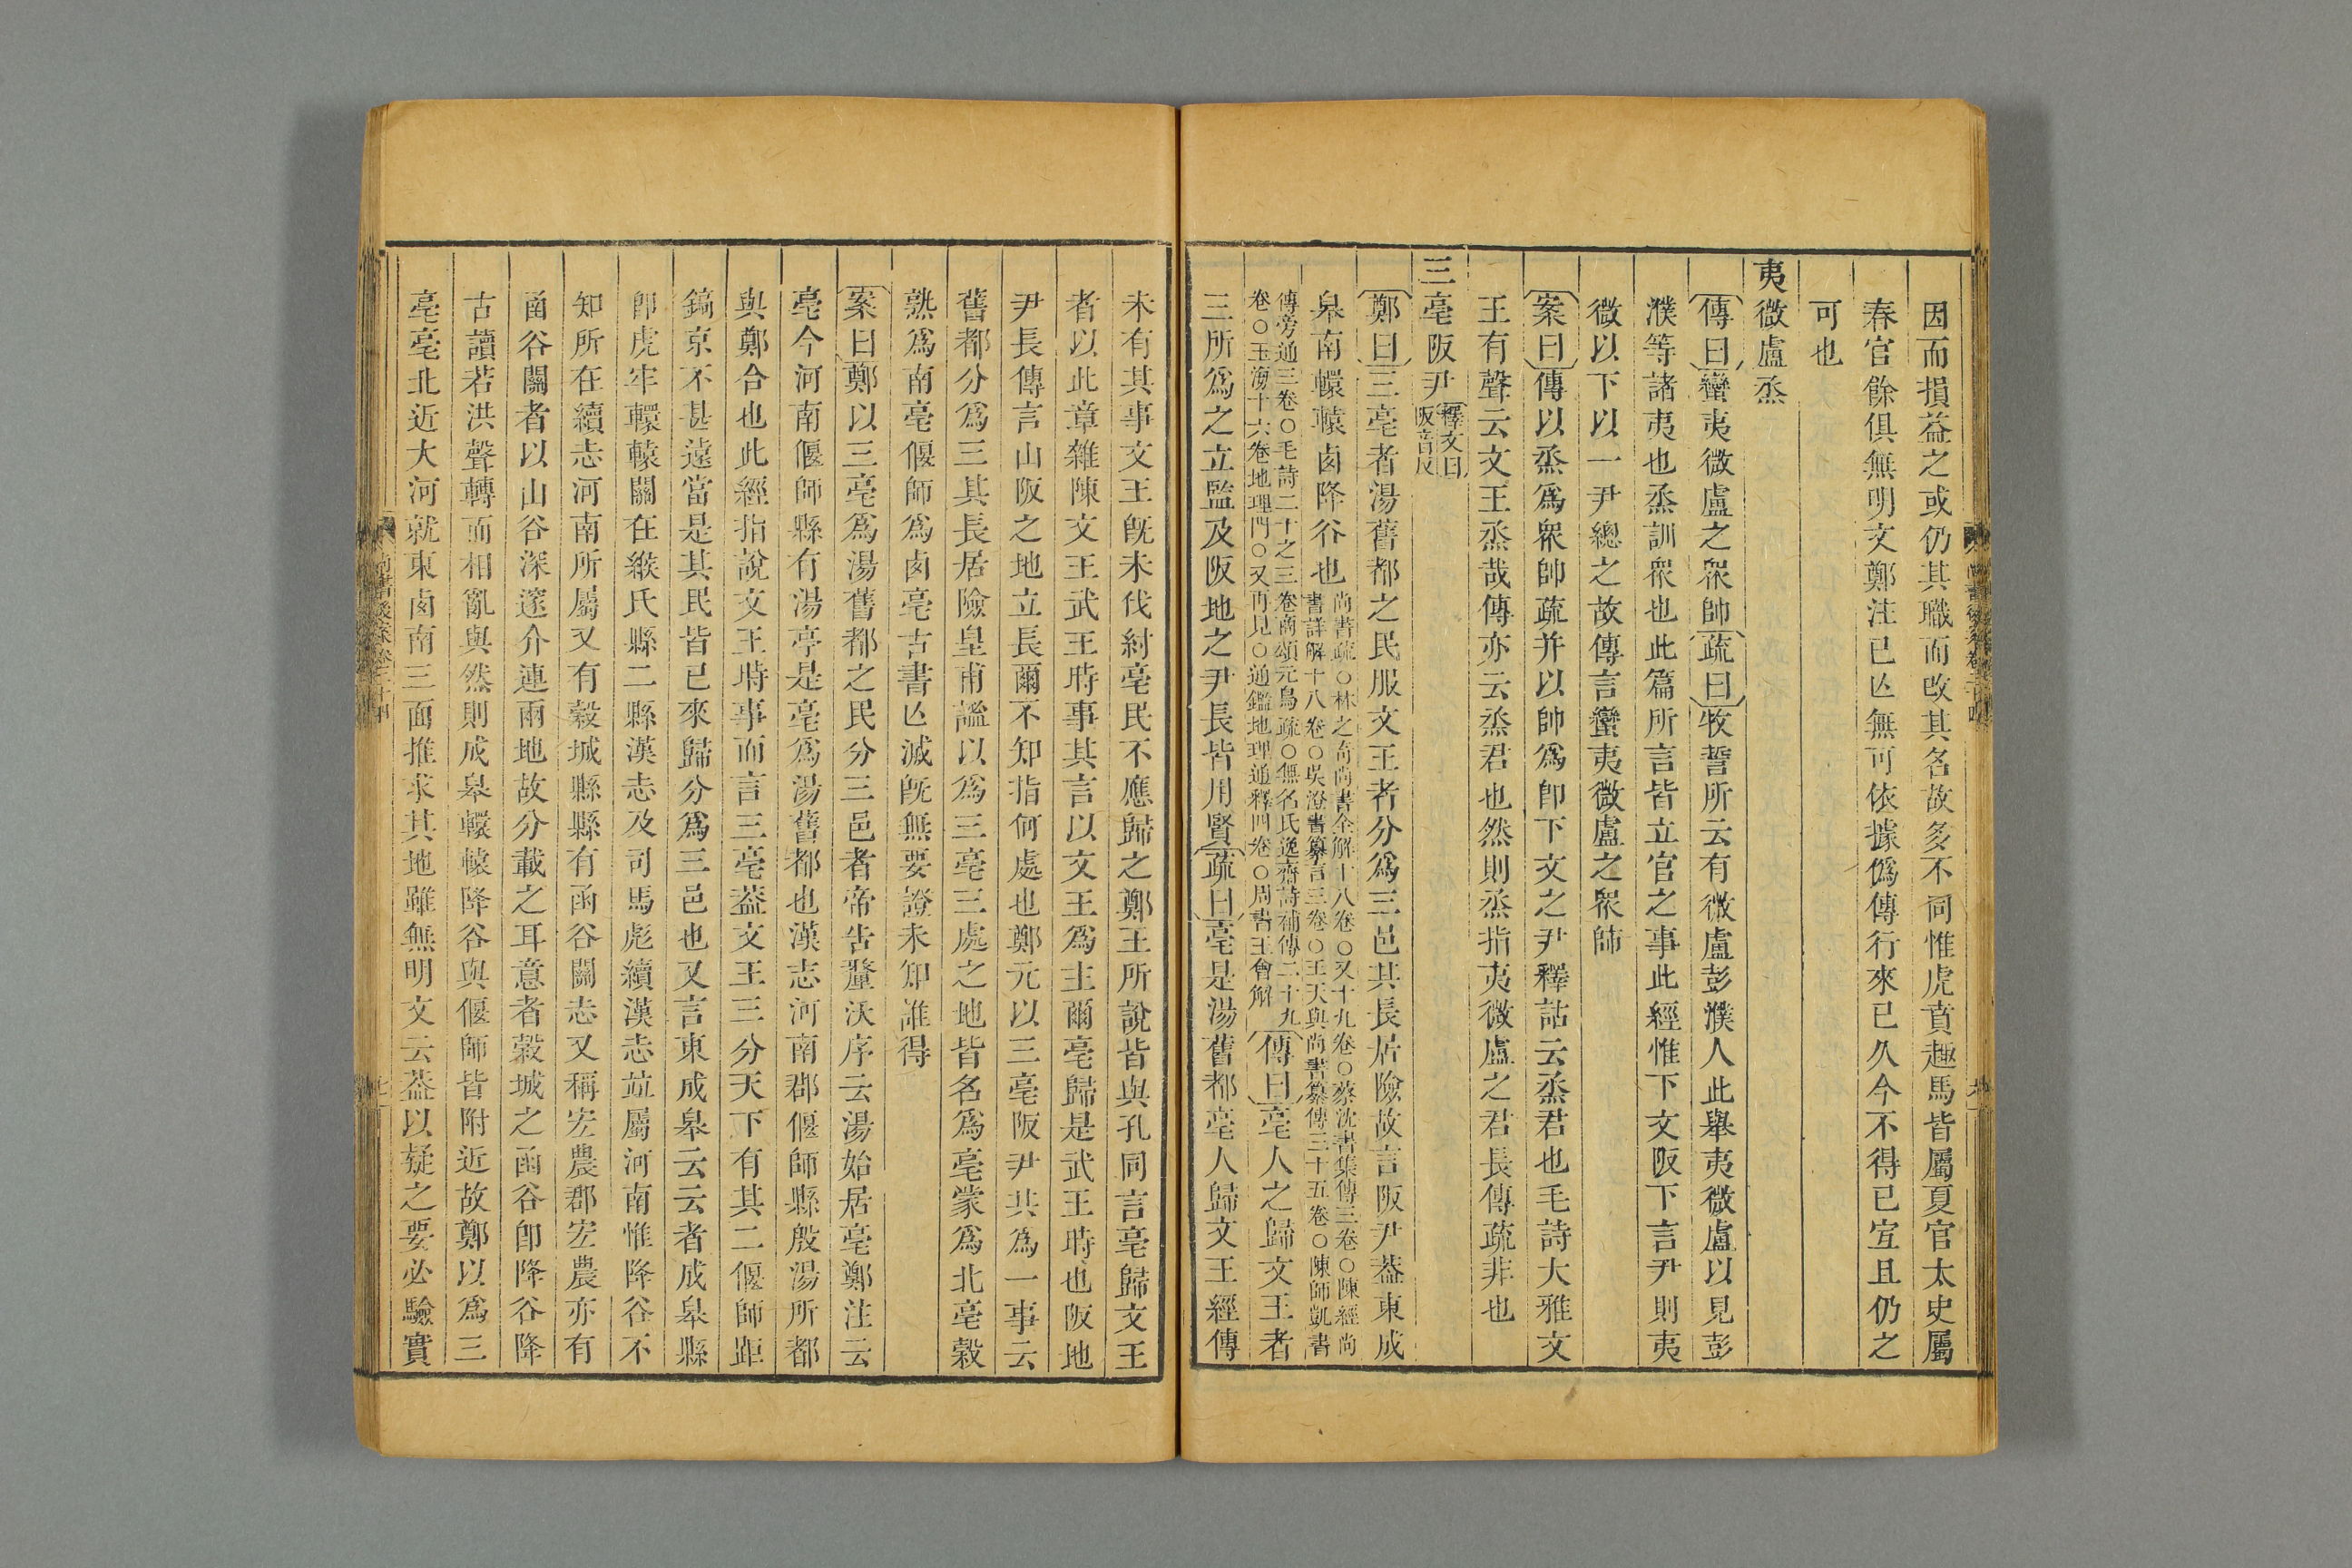 因而損益之或仍其職而改其名故多不同惟虎賁趣馬皆屬夏官太史屬
春官餘俱無明文鄭注已亾無可依據僞傳行來已久今不得已宜且仍之
可也
夷微盧烝
傳曰蠻夷微盧之眾帥疏曰牧誓所云有微盧彭濮人此舉夷微盧以見彭
濮等諸夷也烝訓眾也此篇所言皆立官之事此經惟下文阪下言尹則夷
微以下以一尹總之故傳言蠻夷微盧之眾師
案曰傳以烝爲眾帥疏并以帥爲卽下文之尹釋詁云烝君也毛詩大雅文
王有聲云文王烝哉傳亦云烝君也然則烝指夷微盧之君長傳疏非也
三亳阪尹釋文曰
阪音反
鄭曰三亳者湯舊都之民服文王者分爲三邑其長居險故言阪尹葢東成
皋南轘轅西降谷也尚書疏○林之奇尚書全解十八卷○又十九卷○蔡沈書集傳三卷○陳經尚
書詳解十八卷○吳澄書纂言三卷○王天與尚書纂傳三十五卷○陳師凱書
傳旁通三卷○毛詩二十之三卷商頌元鳥疏○無名氏逸齋詩補傳二十九
卷○玉海十六卷地理門○又再見○通鑑地理通釋四卷○周書王會解傳曰亳人之歸文王者
三所爲之立監及阪地之尹長皆用賢疏曰亳是湯舊都亳人歸文王經傳
未有其事文王旣未伐紂亳民不應歸之鄭王所說皆與孔同言亳歸文王
者以此章雜陳文王武王時事其言以文王爲主爾亳歸是武王時也阪地
尹長傳言山阪之地立長爾不知指何處也鄭元以三亳阪尹共爲一事云
舊都分爲三其長居險皇甫謐以爲三亳三處之地皆名爲亳蒙爲北亳穀
熟爲南亳偃師爲西亳古書亾滅旣無要證未知誰得
案曰鄭以三亳爲湯舊都之民分三邑者帝告釐沃序云湯始居亳鄭注云
亳今河南偃師縣有湯亭是亳爲湯舊都也漢志河南郡偃師縣殷湯所都
與鄭合也此經指說文王時事而言三亳葢文王三分天下有其二偃師距
鎬京不甚遠當是其民皆已來歸分爲三邑也又言東成皋云云者成皋縣
卽虎牢轘轅關在緱氏縣二縣漢志及司馬彪續漢志竝屬河南惟降谷不
知所在續志河南所屬又有穀城縣縣有函谷關志又稱宏農郡宏農亦有
函谷關者以山谷深邃介連兩地故分載之耳意者穀城之函谷卽降谷降
古讀若洪聲轉而相亂與然則成皋轘轅降谷與偃師皆附近故鄭以爲三
亳亳北近大河就東西南三面推求其地雖無明文云葢以疑之要必驗實